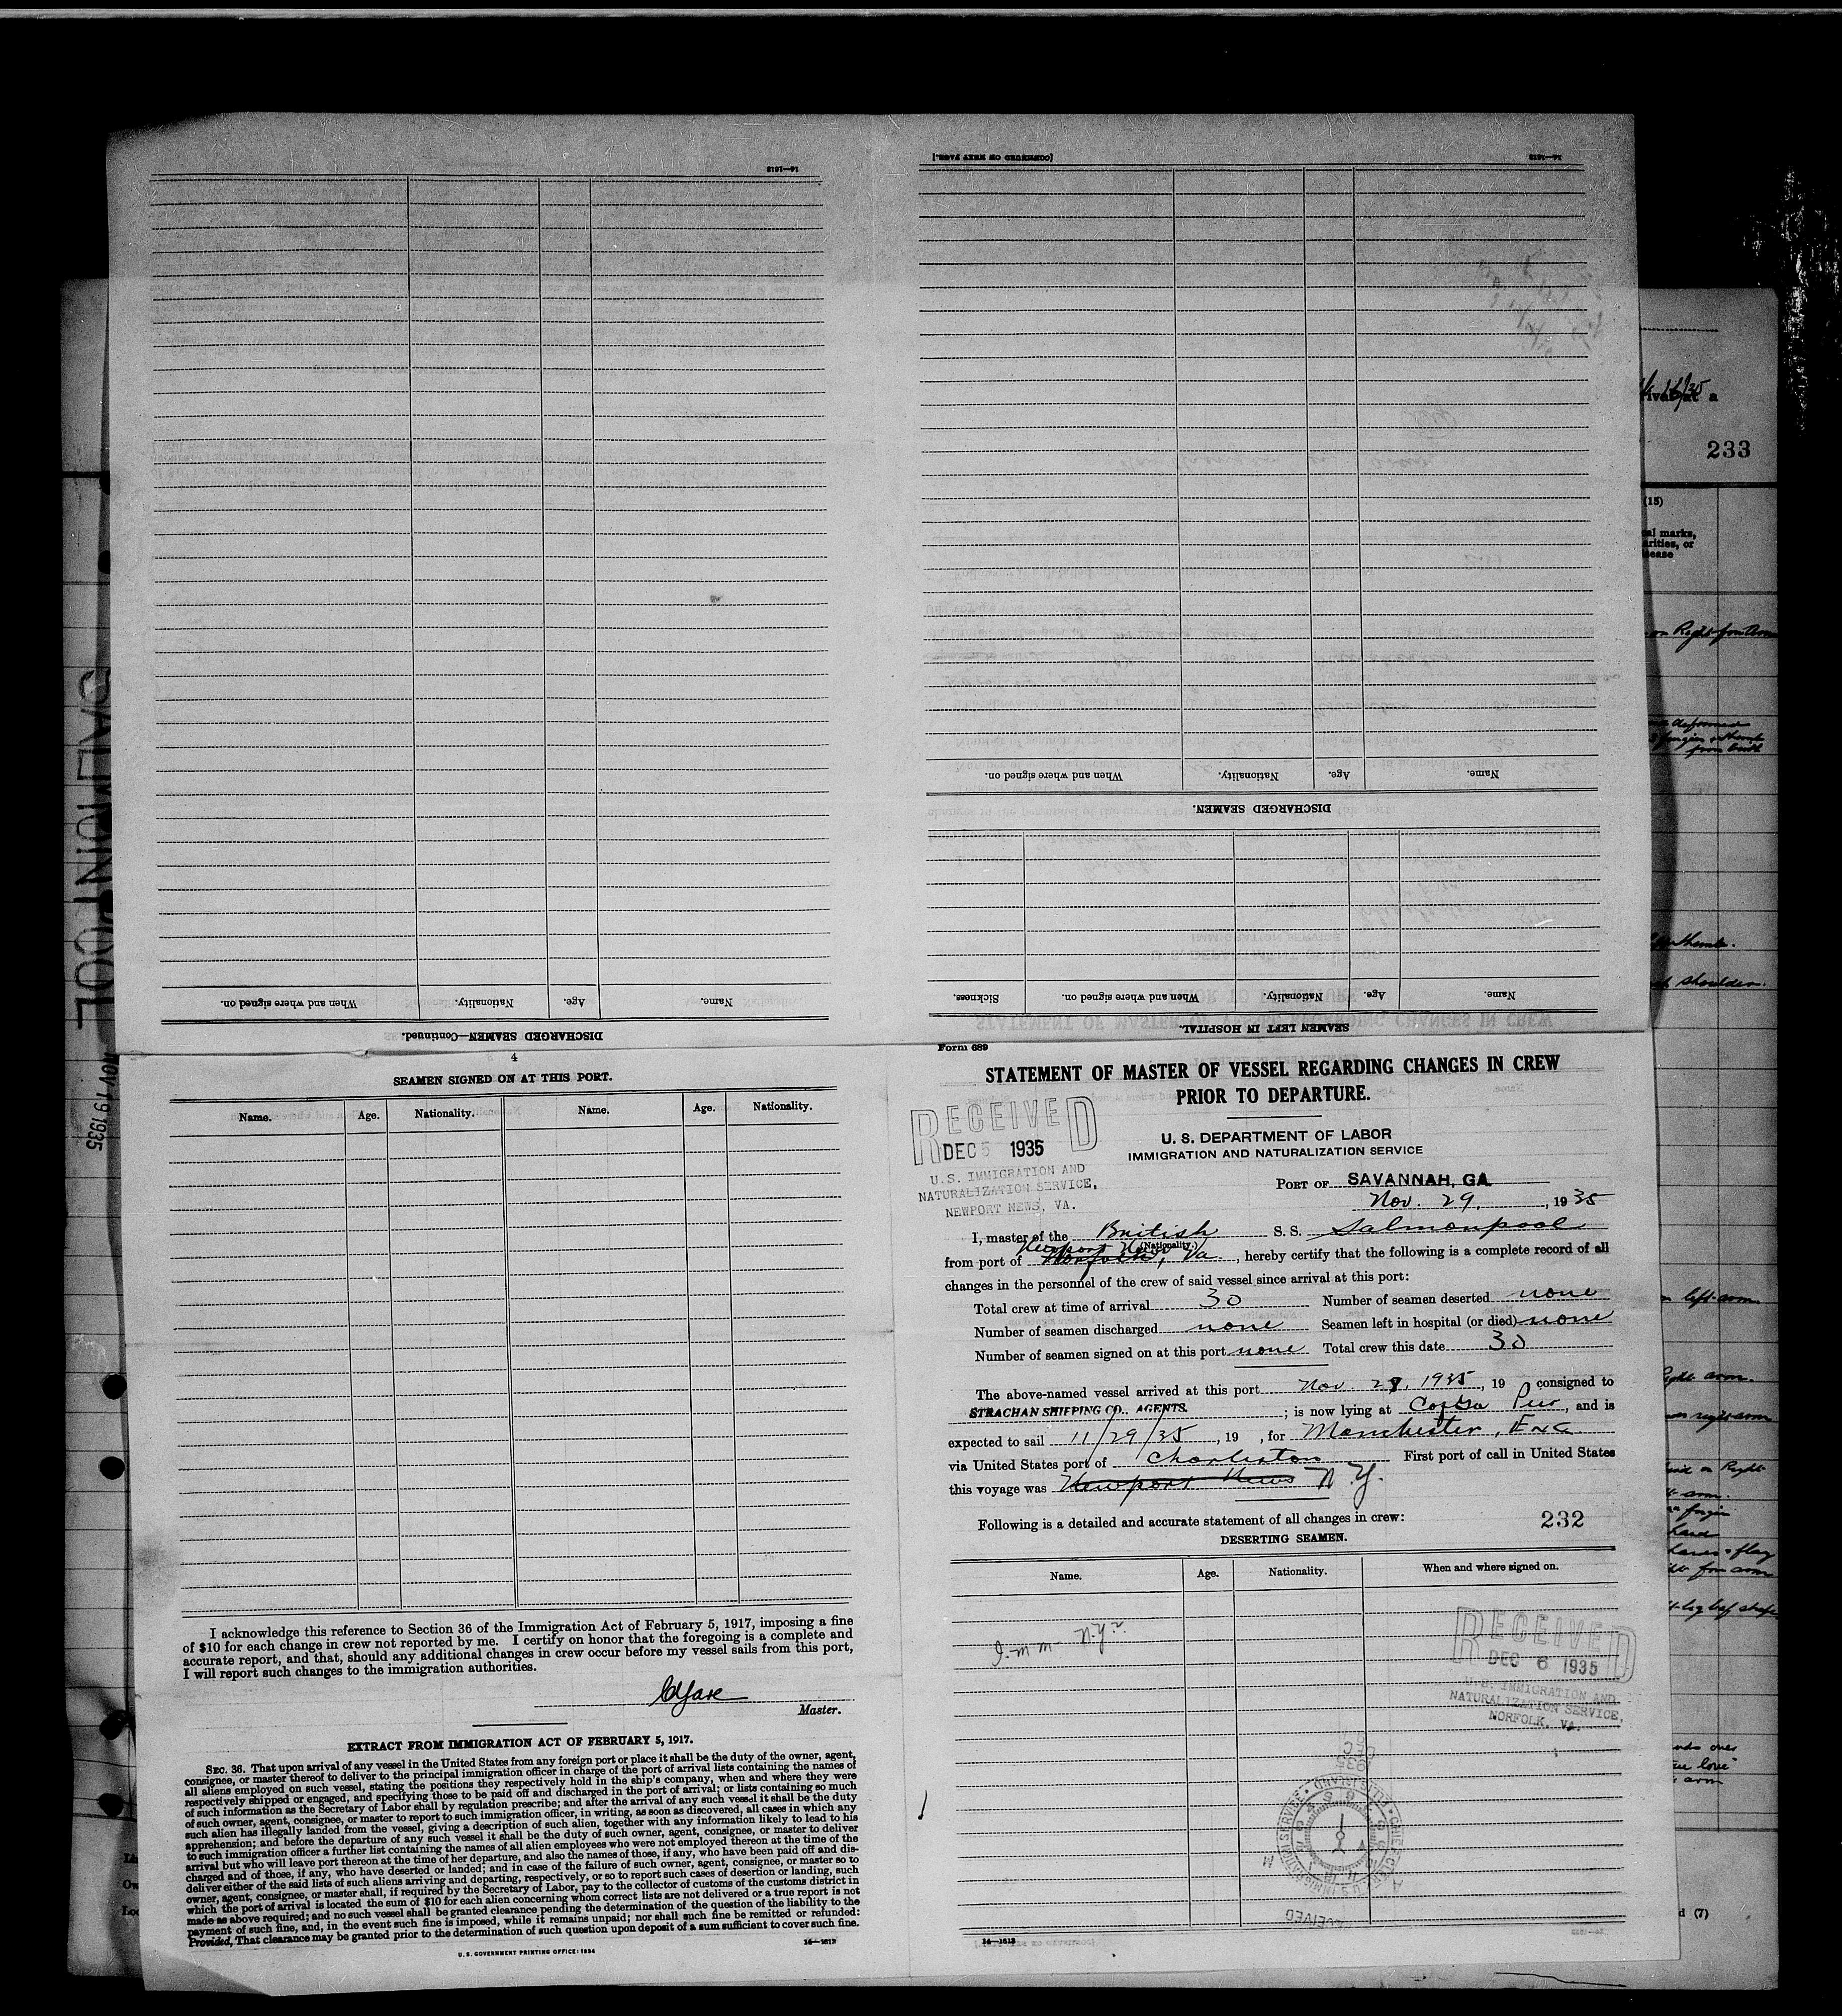 14—1613
DISCHARGED SEAMEN—Continued.
Name.
Age.
Nationality.
When and where signed on.
[CONTINUED ON NEXT PAGE.]
14—1613
SEAMEN LEFT IN HOSPITAL.
Name.
Age.
Nationality.
When and where signed on.
Sickness.
DISCHARGED SEAMEN.
Name.
Age.
Nationality.
When and where signed on.
233
(15)
SALMONPOOL
NOV 19 1935
4
SEAMEN SIGNED ON AT THIS PORT.
Name. Age. Nationality. Name. Age. Nationality.
I acknowledge this reference to Section 36 of the Immigration Act of February 5, 1917, imposing a fine
of $10 for each change in crew not reported by me. I certify on honor that the foregoing is a complete and
accurate report, and that, should any additional changes in crew occur before my vessel sails from this port,
I will report such changes to the immigration authorities.
Master.
EXTRACT FROM IMMIGRATION ACT OF FEBRUARY 5, 1917.
SEC. 36. That upon arrival of any vessel in the United States from any foreign port or place it shall be the duty of the owner, agent,
consignee, or master thereof to deliver to the principal immigration officer in charge of the port of arrival lists containing the names of
all aliens employed on such vessel, stating the positions they respectively hold in the ship's company, when and where they were
respectively shipped or engaged, and specifying those to be paid off and discharged in the port of arrival; or lists containing so much
of such information as the Secretary of Labor shall by regulation prescribe; and after the arrival of any such vessel it shall be the duty
of such owner, agent, consignee, or master to report to such immigration officer, in writing, as soon as discovered, all cases in which any
such alien has illegally landed from the vessel, giving a description of such alien, together with any information likely to lead to his
apprehension; and before the departure of any such vessel it shall be the duty of such owner, agent, consignee, or master to deliver
to such immigration officer a further list containing the names of all alien employees who were not employed thereon at the time of the
arrival but who will leave port thereon at the time of her departure, and also the names of those, if any, who have been paid off and dis-
charged and of those, if any, who have deserted or landed; and in case of the failure of such owner, agent, consignee, or master so to
deliver either of the said lists of such aliens arriving and departing, respectively, or so to report such cases of desertion or landing, such
owner, agent, consignee, or master shall, if required by the Secretary of Labor, pay to the collector of customs of the customs district in
which the port of arrival is located the sum of $10 for each alien concerning whom correct lists are not delivered or a true report is not
made as above required; and no such vessel shall be granted clearance pending the determination of the question of the liability to the
payment of such fine, and, in the event such fine is imposed, while it remains unpaid; nor shall such fine be remitted or refunded:
Provided, That clearance may be granted prior to the determination of such question upon deposit of a sum sufficient to cover such fine.
U. S. GOVERNMENT PRINTING OFFICE: 1934
14—1613
Form 689
STATEMENT OF MASTER OF VESSEL REGARDING CHANGES IN CREW
PRIOR TO DEPARTURE.
RECEIVED
DEC 5 1935
U.S. IMMIGRATION AND
NATURALIZATION SERVICE,
NEWPORT NEWS, VA.
U. S. DEPARTMENT OF LABOR
IMMIGRATION AND NATURALIZATION SERVICE
PORT OF SAVANNAH, GA.
Nov. 29, 1935
I, master of the British S. S. Salmonpool
(Nationality.)
from port of Norfolk, Newport News Va, hereby certify that the following is a complete record of all
changes in the personnel of the crew of said vessel since arrival at this port:
Total crew at time of arrival 30 Number of seamen deserted none
Number of seamen discharged none Seamen left in hospital (or died) none
Number of seamen signed on at this port none Total crew this date 30
The above-named vessel arrived at this port Nov. 27, 1935, 19 consigned to
STRACHAN SHIPPING CO., AGENTS. ; is now lying at, and is
expected to sail 11/29/35, 19 , for Manchester, Eng
via United States port of Charleston First port of call in United States
this voyage was Newport News N Y.
Following is a detailed and accurate statement of all changes in crew:
232
DESERTING SEAMEN.
Name. Age. Nationality. When and where signed on.
RECEIVED
DEC 6 1935
U.S. IMMIGRATION AND
NATURALIZATION SERVICE,
NORFOLK, VA.
RECEIVED
14—1613